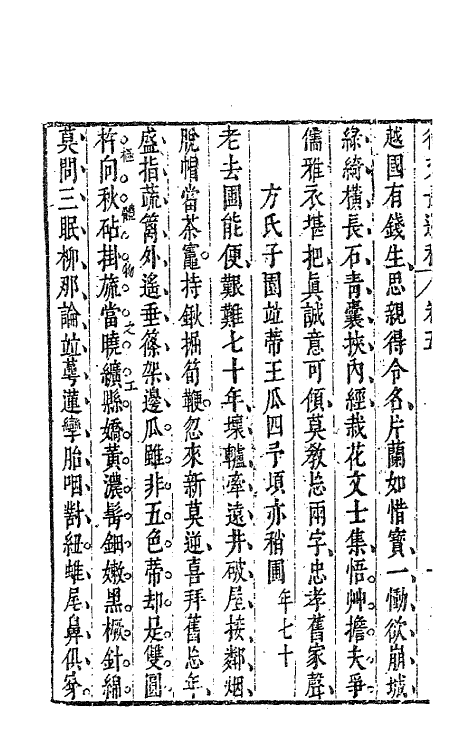 卷五
越國有錢生思親得令名片蘭如惜寶一慟欲崩城
綠綺橫長石青囊挾內經栽花文士集悟艸擔夫爭
儒雅衣堪把眞誠意可傾莫敎忘兩字忠孝舊家聲
方氏子園竝蒂王瓜四子項亦稍圃年七十
老去圃能便艱難七十年壞轤牽遠井破屋接鄰烟
脫帽當茶竈持鍬掘筍鞭忽來新莫逆喜拜舊忘年
盛指蔬籬外遙垂篠架邊瓜雖非五色蒂却是雙圓
極體物之工
杵向秋砧掛旒當曉纊縣嬌黃濃髩鈿嫩黑橛針綿
莫問三眠柳那論竝蕚蓮孿胎咽對紐雌尾鼻俱穿